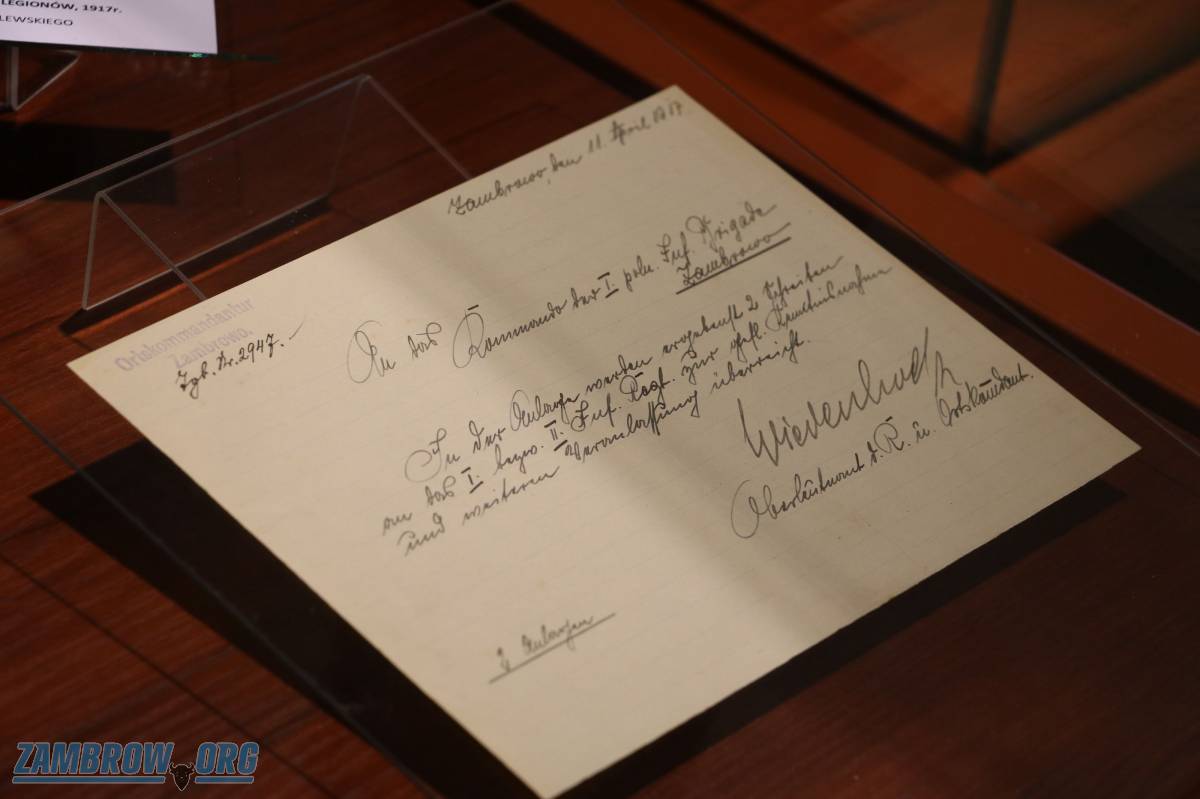 LEGIONÓW, 1917r.
LEWSKIEGO
Zambrowo, den 11. April 1917.
Ortskommandantur
Zambrowo.
Tgb. Nr. 2947.
An das Kommando der I. poln. Inf. Brigade
Zambrowo
In der Anlage werden ergebenst 2 Schreiben
an das I. bezw. II. Inf. Regt. zur gefl. Kenntnisnahme
und weiteren Veranlassung überreicht.
Wiedenhoff
Oberleutnant d. R. u. Ortskomdant.
2 Anlagen
ZAMBROW.ORG